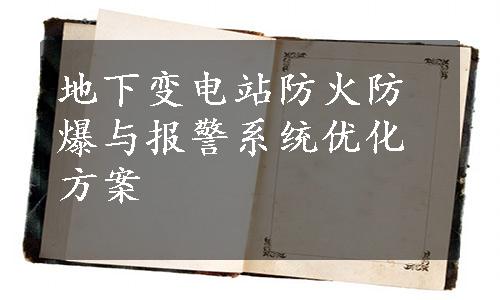 地下变电站防火防
爆与报警系统优化
方案